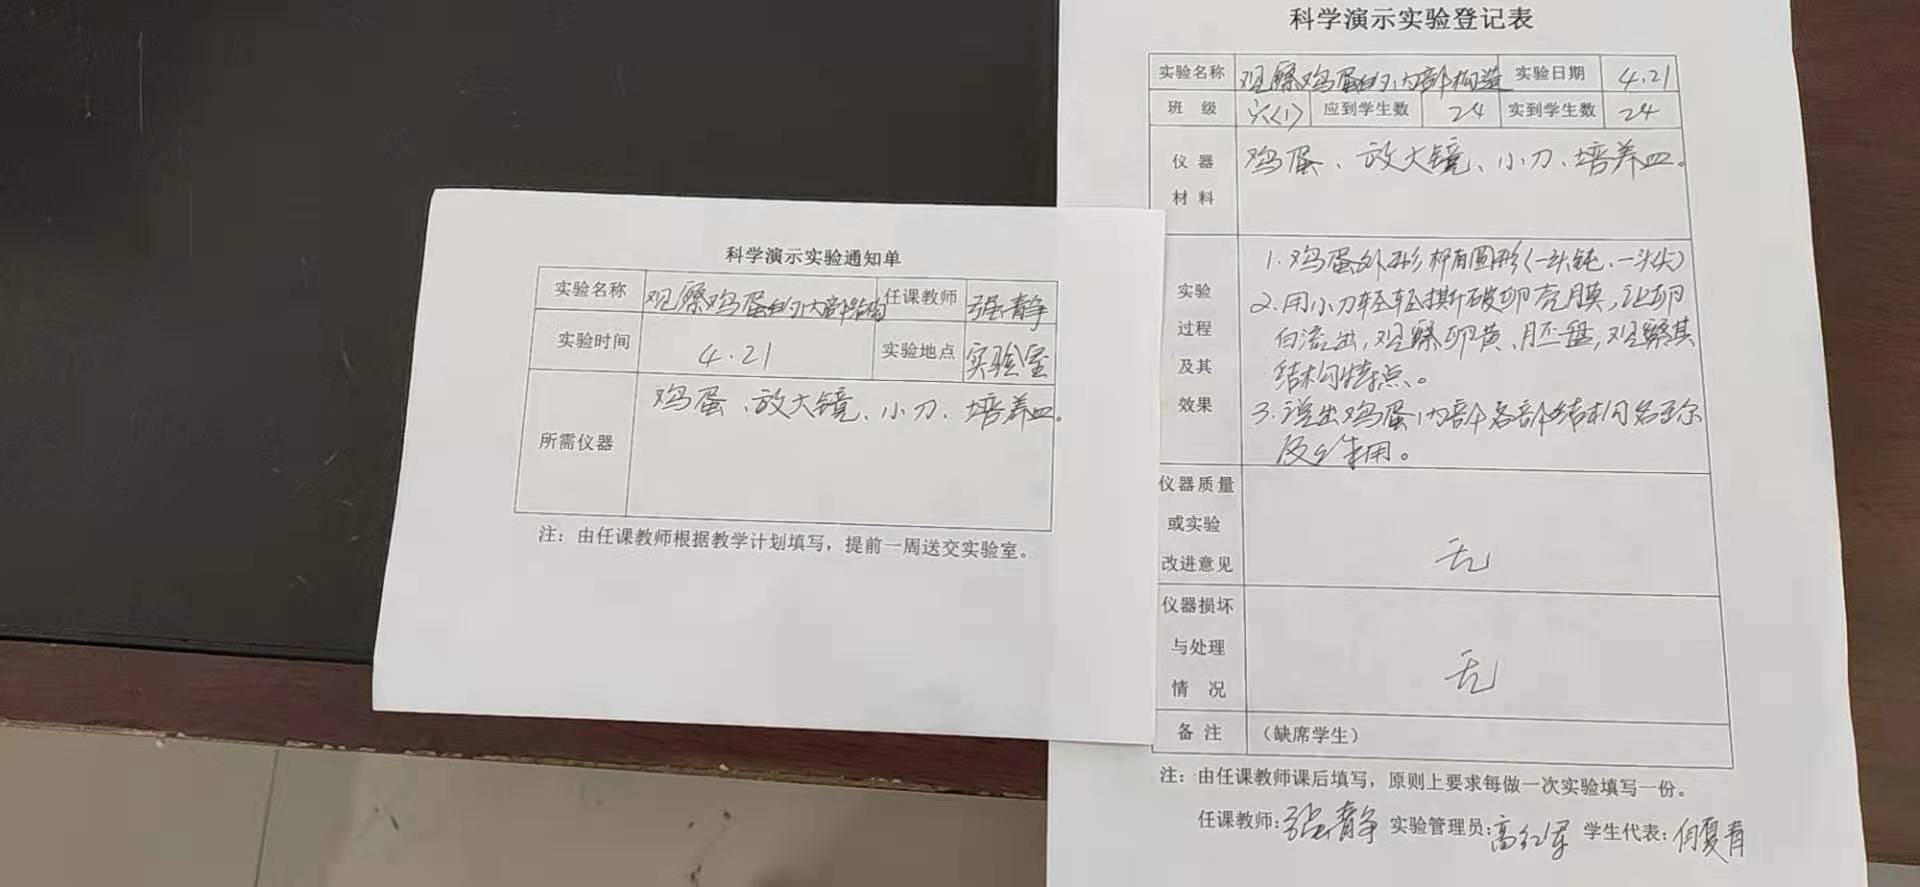 科学演示实验通知单
实验名称 观察鸡蛋的内部结构 任课教师 张静
实验时间 4.21 实验地点 实验室
所需仪器 鸡蛋、放大镜、小刀、培养皿。
注：由任课教师根据教学计划填写，提前一周送交实验室。
科学演示实验登记表
实验名称 观察鸡蛋的内部构造 实验日期 4.21
班 级 六(1) 应到学生数 24 实到学生数 24
仪 器 材 料 鸡蛋、放大镜、小刀、培养皿。
实验
过程
及其
效果
1.鸡蛋外形椭圆形(一头钝、一头尖)
2.用小刀轻轻撕破卵壳膜,让卵
白流出,观察卵黄、胚盘,观察其
结构特点。
3.说出鸡蛋内部各部结构名称
及作用。
仪器质量
或实验
改进意见
无
仪器损坏
与处理
情 况
无
备 注 （缺席学生）
注：由任课教师课后填写，原则上要求每做一次实验填写一份。
任课教师:张静 实验管理员:高红军 学生代表:何夏青